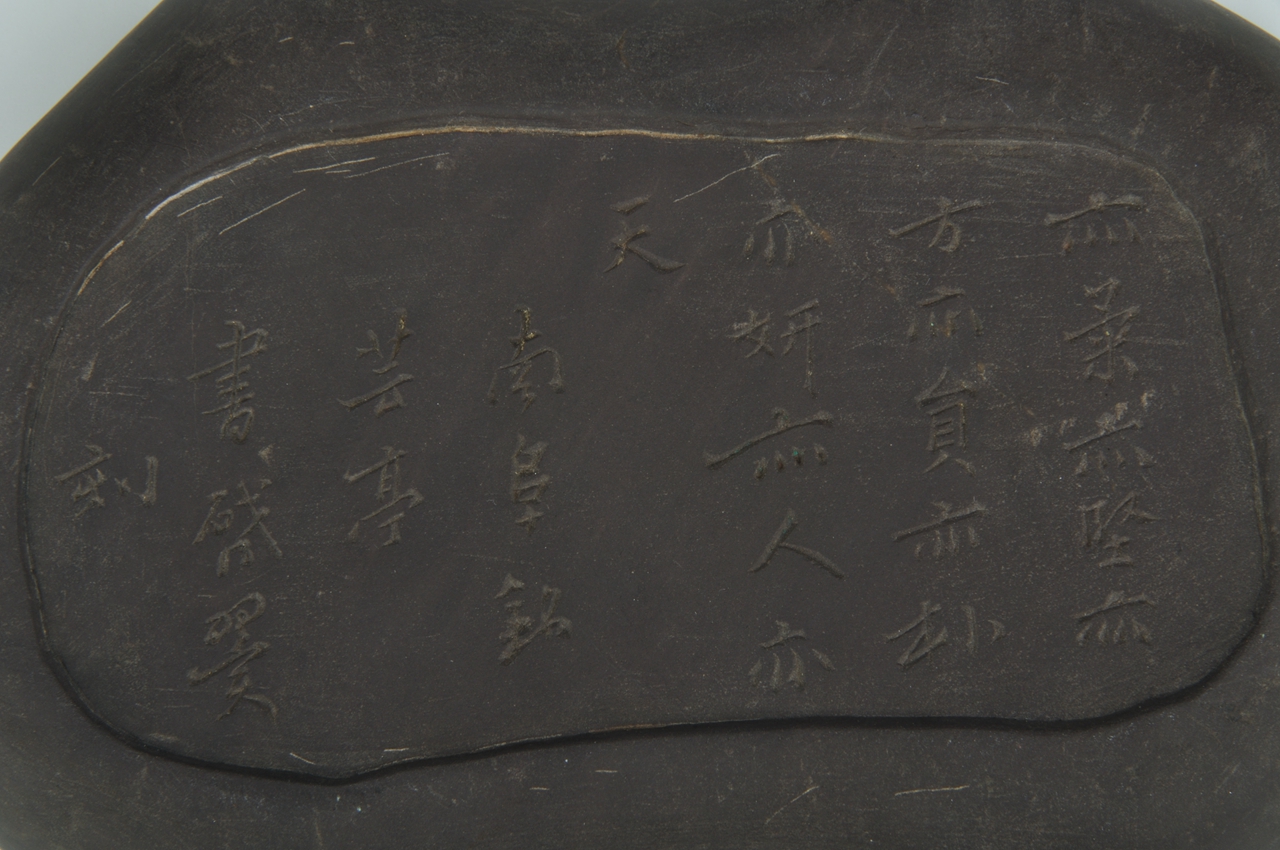 亦柔亦堅亦
方亦員亦
亦妍亦人亦
天
南阜銘
芸亭
書
刻